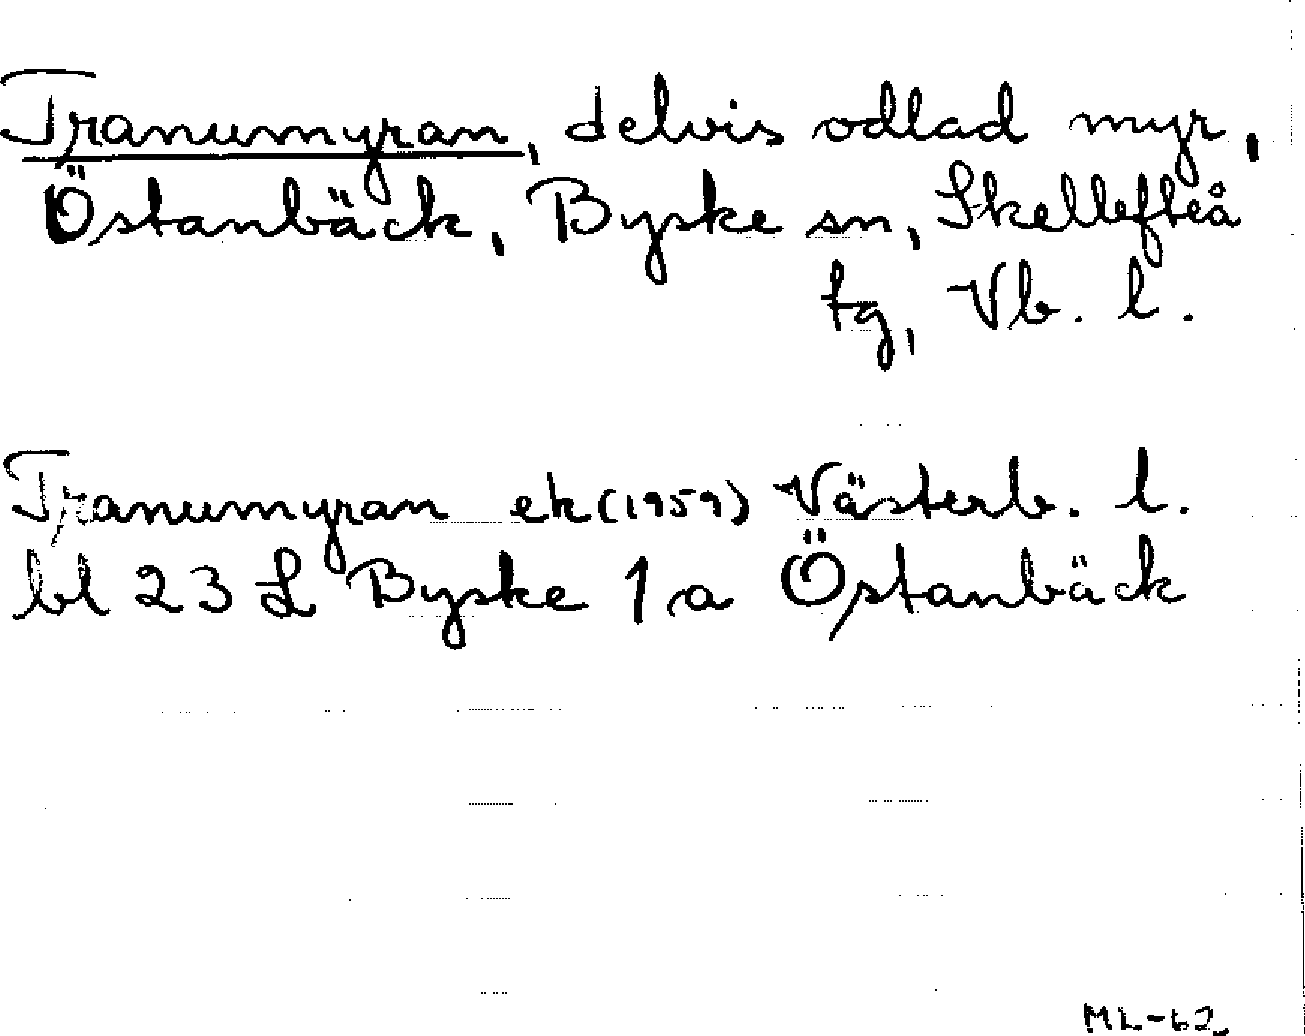 Tranumyran, delvis odlad myr,
Östanbäck, Byske sn, Skellefteå
tg, Vb. l.
Tranumyran ek (1959) Västerb. l.
bl 23 L Byske 1 a Östanbäck
ML-62